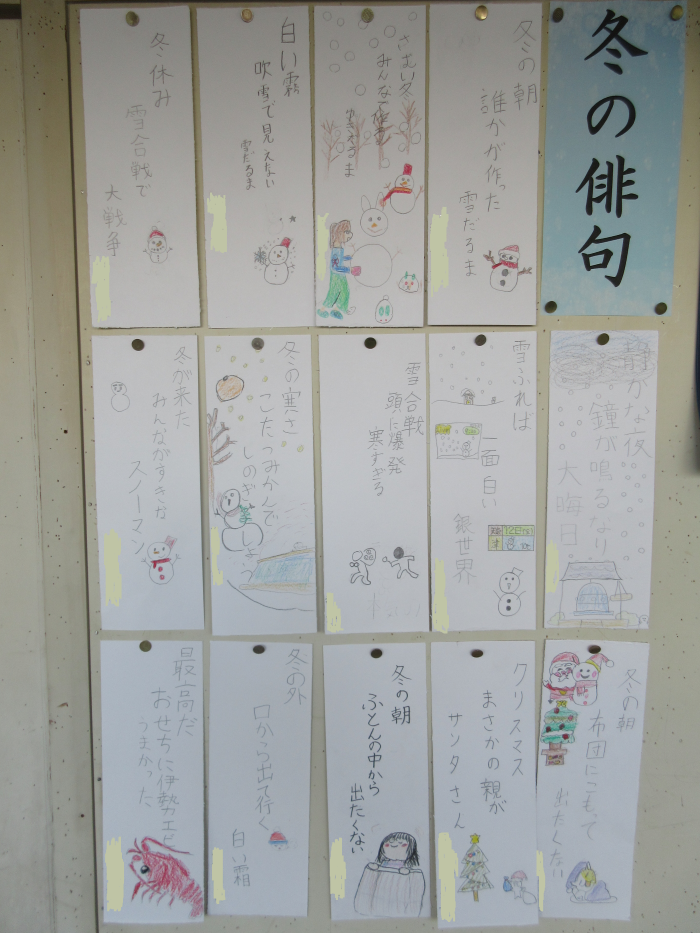 冬の俳句
冬の朝
誰かが作った
雪だるま
さむい冬
みんなで作る
ゆきだるま
白い霧
吹雪で見えない
雪だるま
冬休み
雪合戦で
大戦争
静かな夜
鐘が鳴るなり
大晦日
雪ふれば
一面白い
銀世界
雪合戦
頭に爆発
寒すぎる
冬の寒さ
こたつみかんで
しのぎましょう
冬が来た
みんながすきな
スノーマン
冬の朝
布団にこもって
出たくない
クリスマス
まさかの親が
サンタさん
冬の朝
ふとんの中から
出たくない
冬の外
口から出て行く
白い霜
最高だ
おせちに伊勢エビ
うまかった